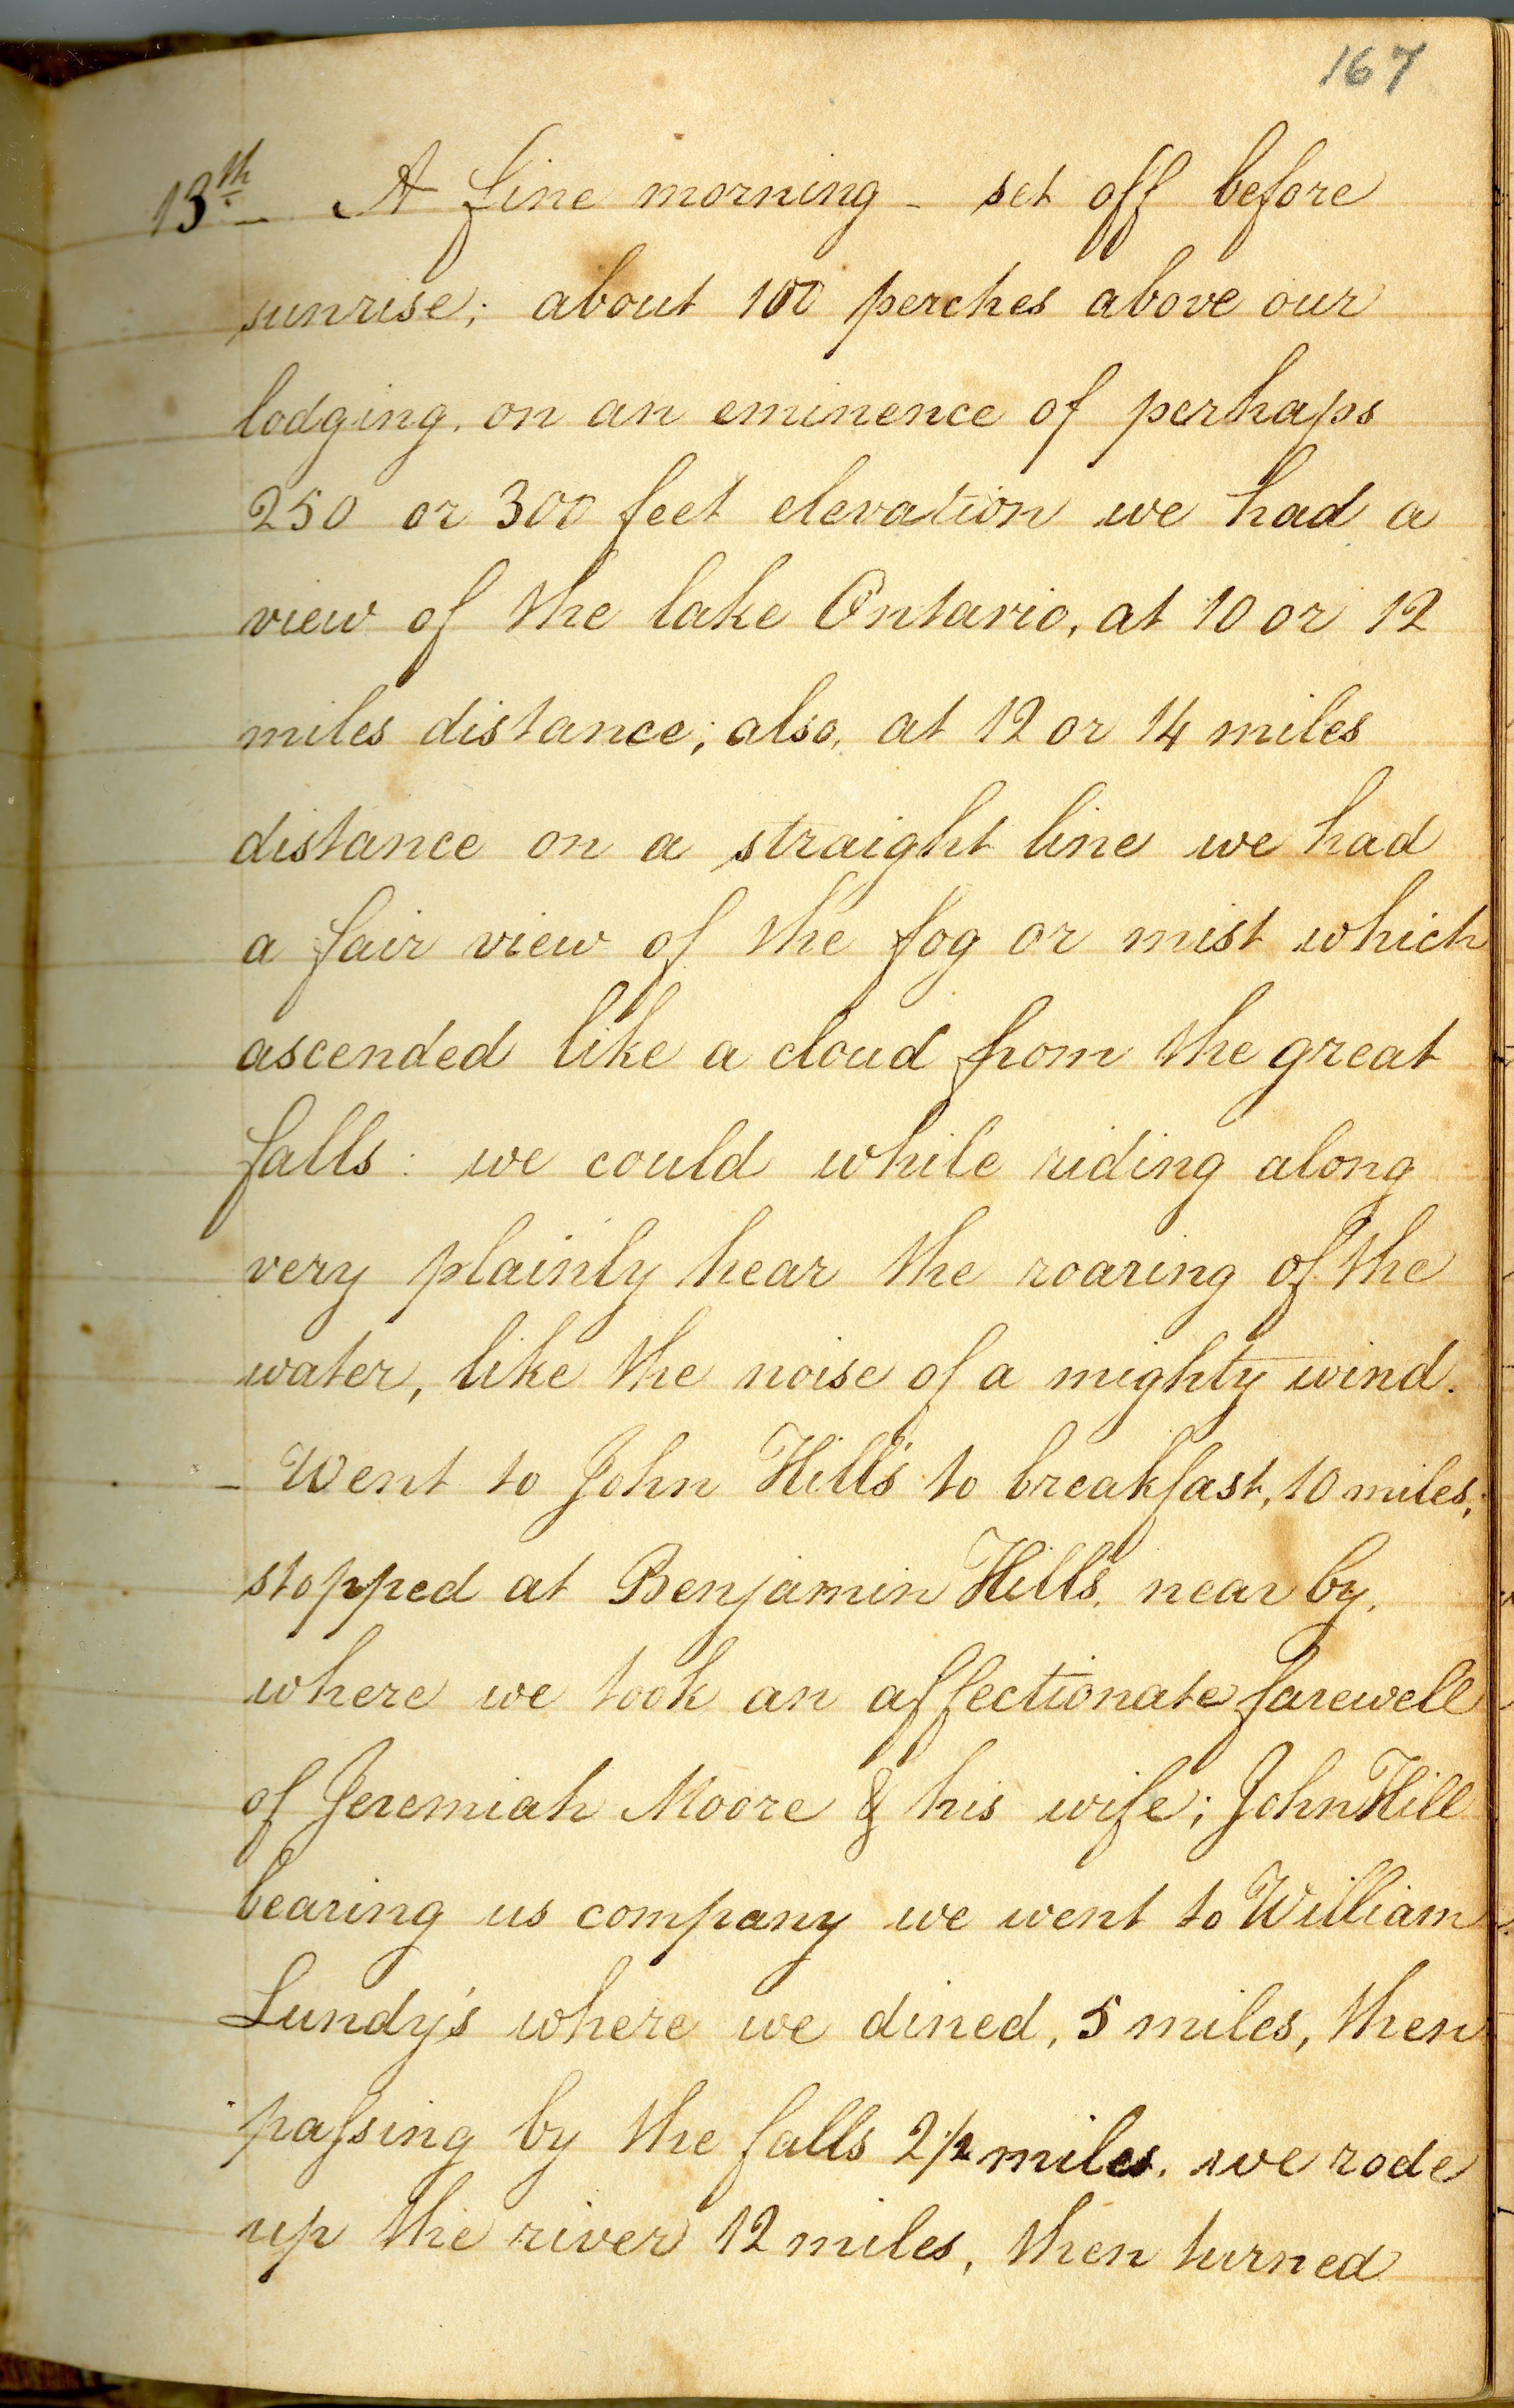 167
13th A fine morning - set off before
sunrise; about 100 perches above our
lodging, on an eminence of perhaps
250 or 300 feet elevation we had a
view of the lake Ontario, at 10 or 12
miles distance; also, at 12 or 14 miles
distance on a straight line we had
a fair view of the fog or mist which
ascended like a cloud from the great
falls: we could while riding along
very plainly hear the roaring of the
water, like the noise of a mighty wind.
- Went to John Hill's to breakfast, 10 miles;
stopped at Benjamin Hill's, near by,
where we took an affectionate farewell
of Jeremiah Moore & his wife; John Hill
bearing us company we went to William
Lundy's where we dined, 5 miles, then
paſsing by the falls 2 1/2 miles, we rode
up the river 12 miles, then turned